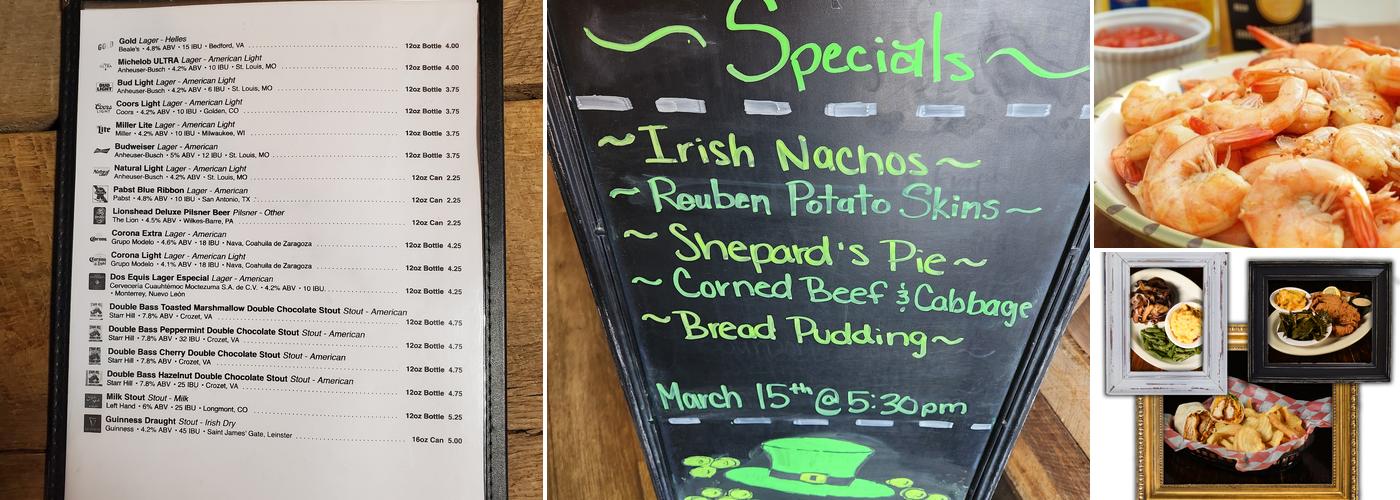 Gold Lager - Helles
Beale's • 4.8% ABV • 15 IBU • Bedford, VA 12oz Bottle 4.00
Michelob ULTRA Lager - American Light
Anheuser-Busch • 4.2% ABV • 10 IBU • St. Louis, MO 12oz Bottle 4.00
Bud Light Lager - American Light
Anheuser-Busch • 4.2% ABV • 6 IBU • St. Louis, MO 12oz Bottle 3.75
Coors Light Lager - American Light
Coors • 4.2% ABV • 10 IBU • Golden, CO 12oz Bottle 3.75
Miller Lite Lager - American Light
Miller • 4.2% ABV • 10 IBU • Milwaukee, WI 12oz Bottle 3.75
Budweiser Lager - American
Anheuser-Busch • 5% ABV • 12 IBU • St. Louis, MO 12oz Bottle 3.75
Natural Light Lager - American Light
Anheuser-Busch • 4.2% • St. Louis, MO 12oz Can 2.25
Pabst Blue Ribbon Lager - American
Pabst • 4.8% ABV • 10 IBU • San Antonio, TX 12oz Can 2.25
Lionshead Deluxe Pilsner Beer Pilsner - Other
The Lion • 4.5% ABV • Wilkes-Barre, PA 12oz Can 2.25
Corona Extra Lager - American
Grupo Modelo • 4.6% ABV • 18 IBU • Nava, Coahuila de Zaragoza 12oz Bottle 4.25
Corona Light Lager - American Light
Grupo Modelo • 4.1% ABV • 18 IBU • Nava, Coahuila de Zaragoza 12oz Bottle 4.25
Dos Equis Lager Especial Lager - American
Cervecería Cuauhtémoc Moctezuma S.A. de C.V. • 4.2% ABV • 10 IBU.
• Monterrey, Nuevo León 12oz Bottle 4.25
Double Bass Toasted Marshmallow Double Chocolate Stout Stout - American
Starr Hill • 7.8% ABV • Crozet, VA 12oz Bottle 4.75
Double Bass Peppermint Double Chocolate Stout Stout - American
Starr Hill • 7.8% ABV • 32 IBU • Crozet, VA 12oz Bottle 4.75
Double Bass Cherry Double Chocolate Stout Stout - American
Starr Hill • 7.8% ABV • Crozet, VA 12oz Bottle 4.75
Double Bass Hazelnut Double Chocolate Stout Stout - American
Starr Hill • 7.8% ABV • 25 IBU • Crozet, VA 12oz Bottle 4.75
Milk Stout Stout - Milk
Left Hand • 6% ABV • 25 IBU • Longmont, CO 12oz Bottle 5.25
Guinness Draught Stout - Irish Dry
Guinness • 4.2% ABV • 45 IBU • Saint James' Gate, Leinster 16oz Can 5.00
~ Specials ~
~ Irish Nachos ~
~ Reuben Potato Skins ~
~ Shepard's Pie ~
~ Corned Beef & Cabbage
~ Bread Pudding ~
March 15th @ 5:30pm